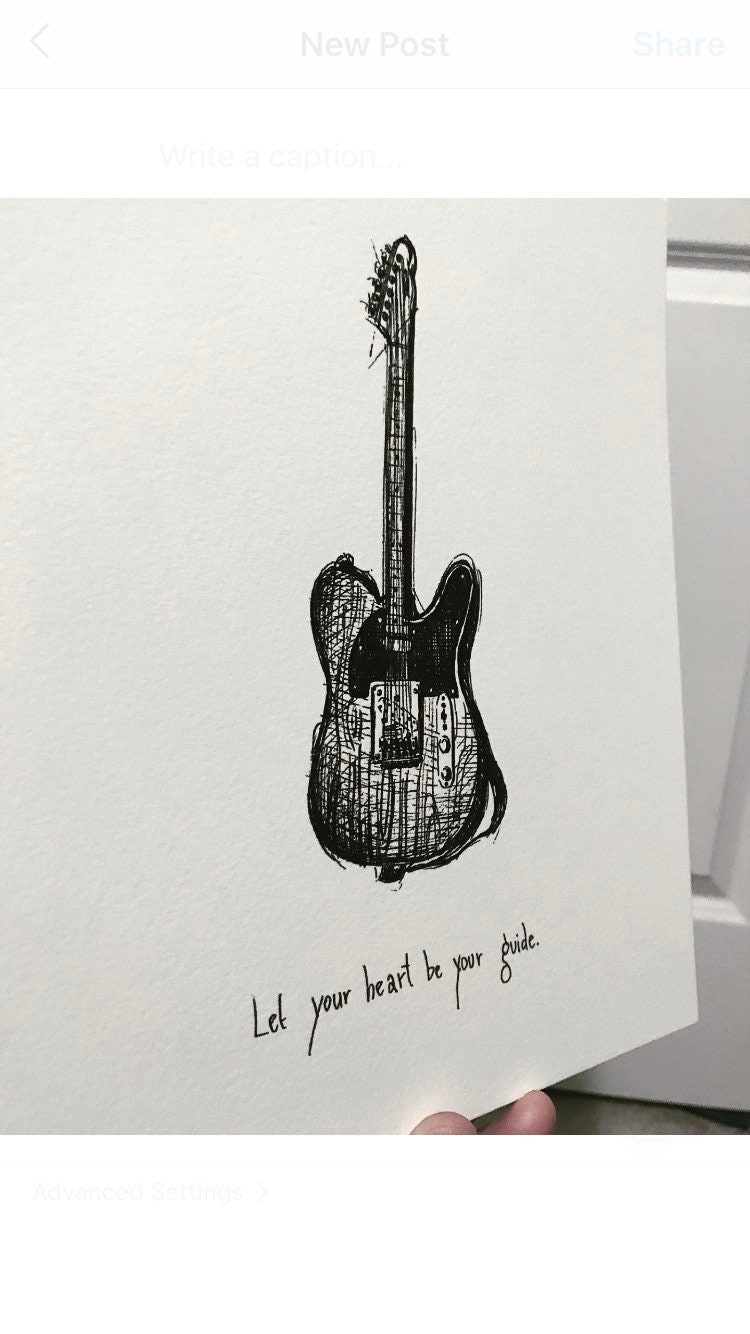 New Post
Share
Write a caption...
Let your heart be your guide.
Advanced Settings